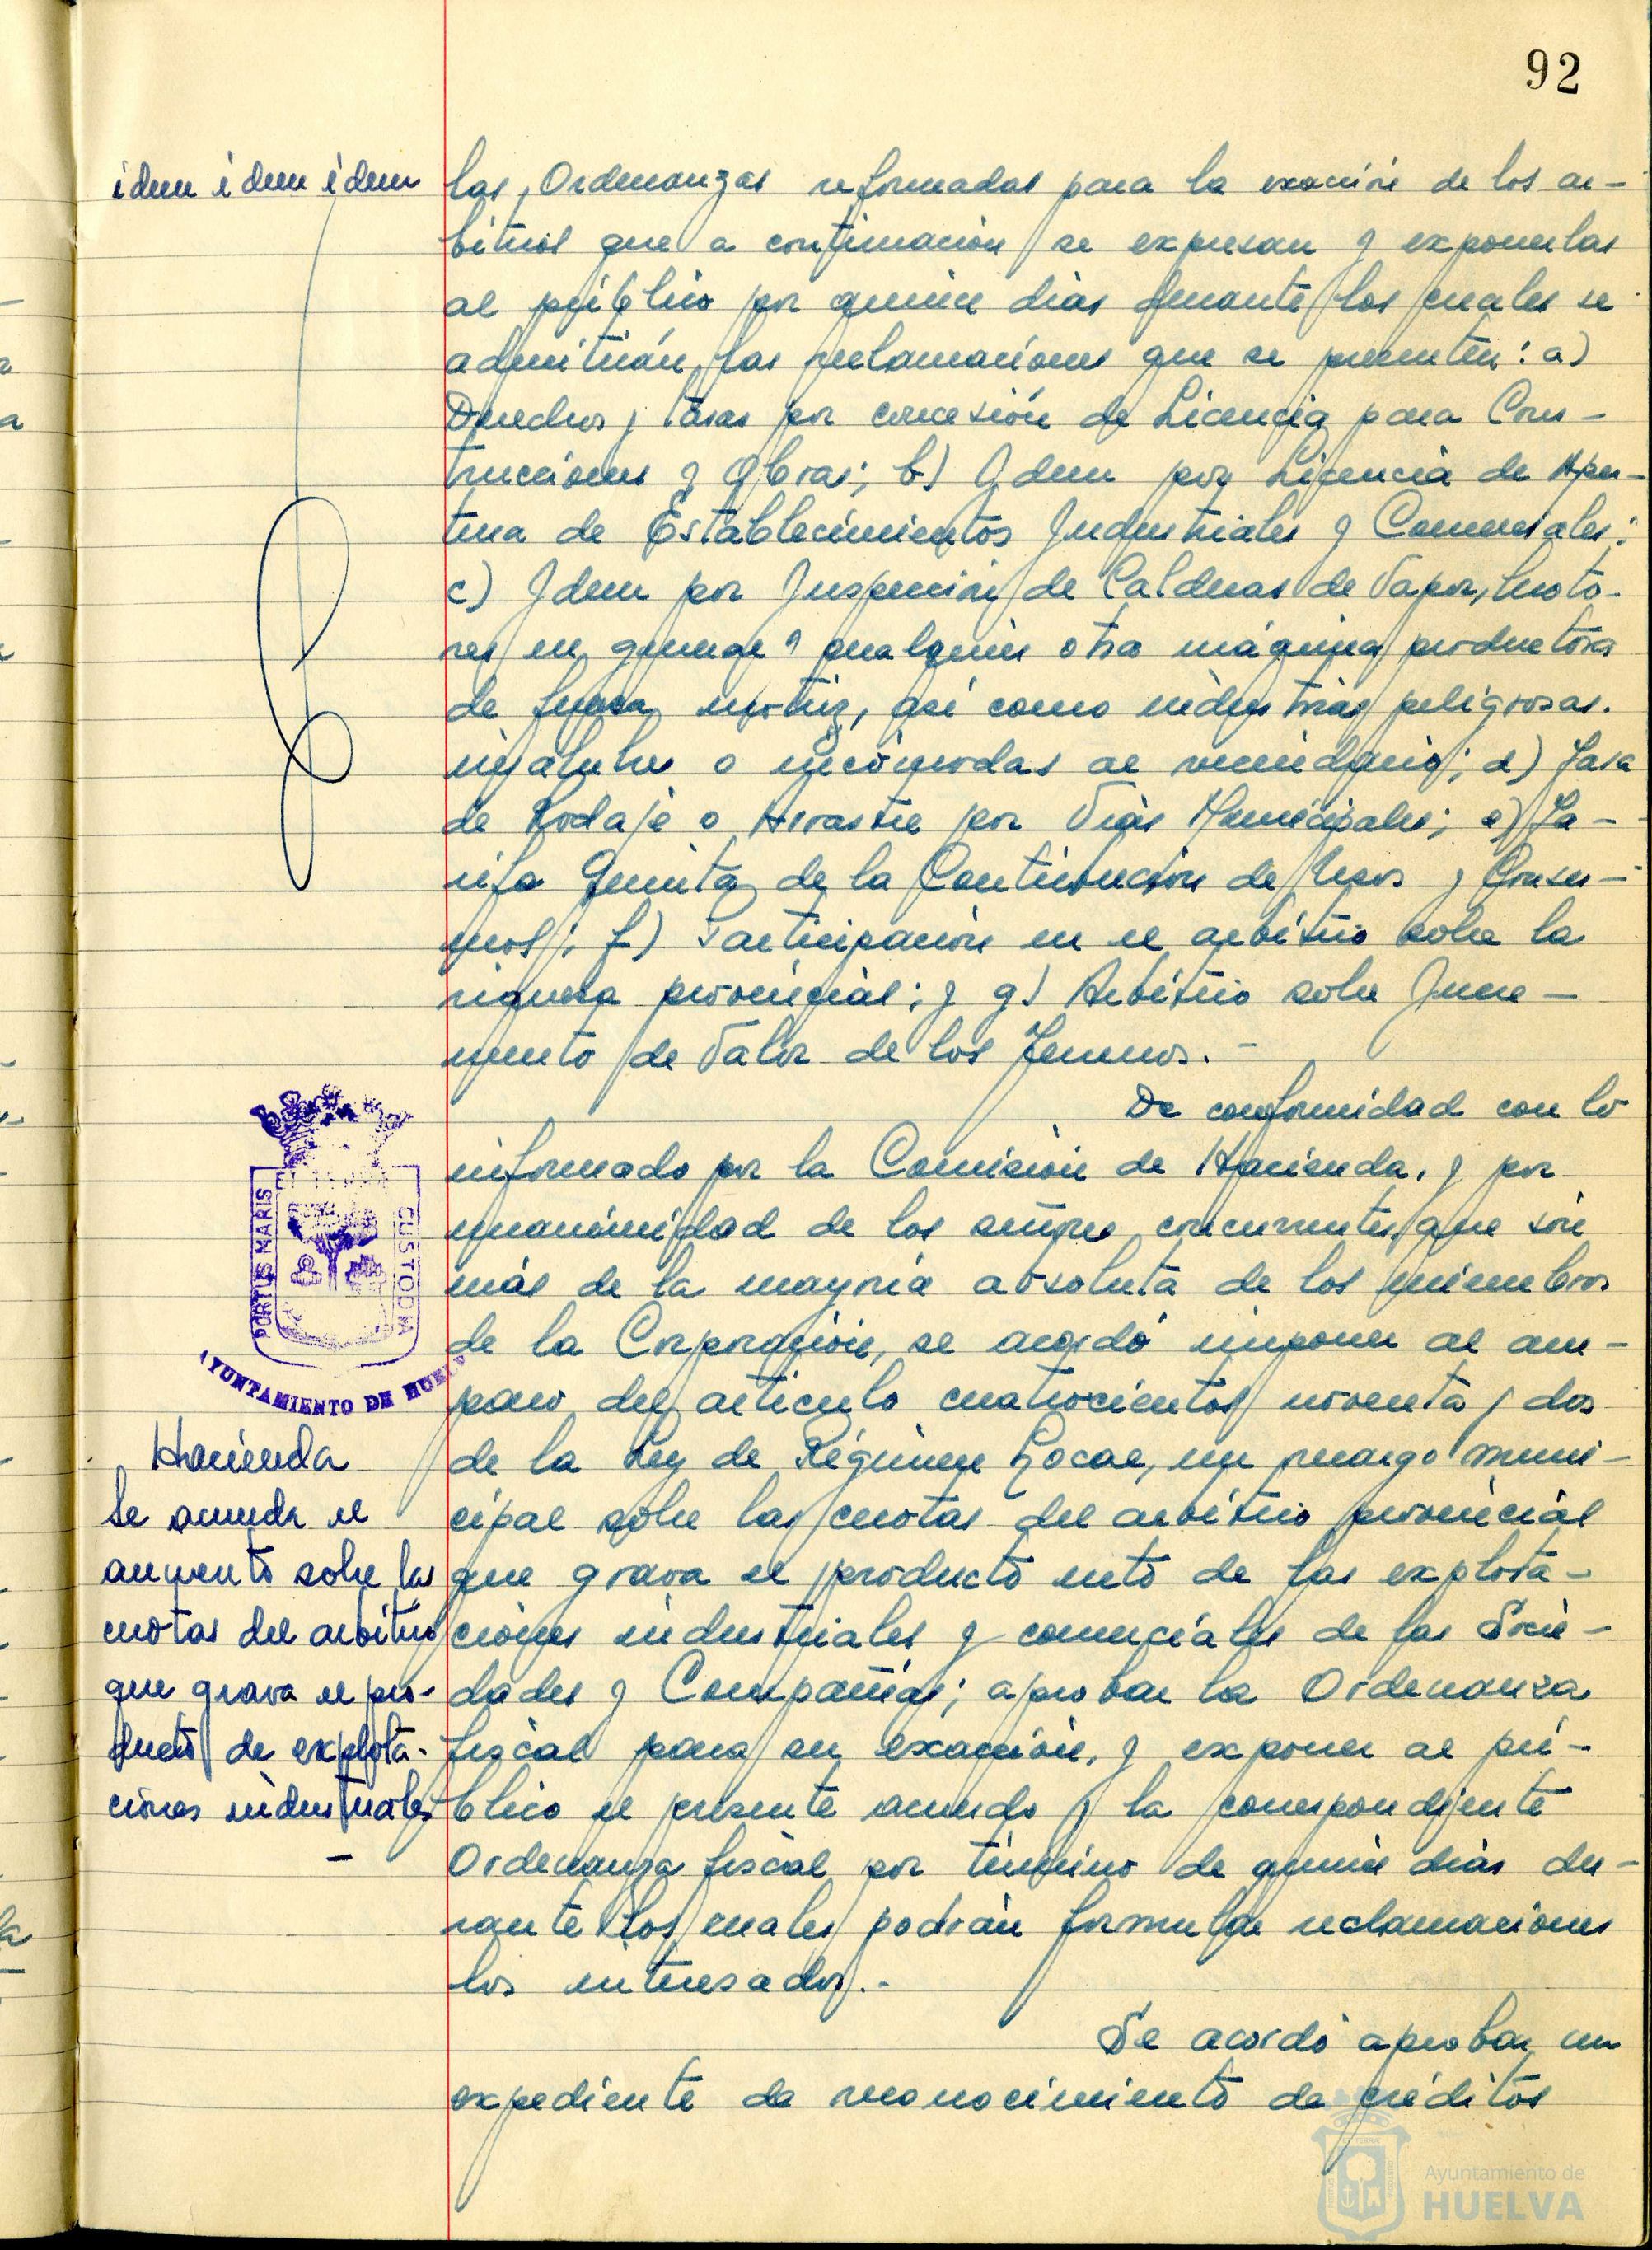 92
idem idem idem
las Ordenanzas reformadas para la exacción de los ar-
bitrios que a continuación se expresan y exponerlas
al público por quince días durante los cuales se
admitirán las reclamaciones que se presenten: a)
Derechos y tasas por concesión de Licencia para Cons-
trucciones y Obras; b) Idem por Licencia de Aper-
tura de Establecimientos Industriales y Comerciales;
c) Idem por Inspección de Calderas de Vapor, Moto-
res en general y cualquier otra máquina productora
de fuerza motriz, así como industrias peligrosas.
insalubres o incómodas al vecindario; d) Tasa
de Rodaje o Arrastre por Vías Municipales; e) Ta-
rifa Quinta de la Contribución de Usos y Consu-
mos; f) Participación en el arbitrio sobre la
riqueza provincial; y g) Arbitrio sobre Incre-
mento de Valor de los Terrenos.-
De conformidad con lo
informado por la Comisión de Hacienda, y por
unanimidad de los señores concurrentes, que son
más de la mayoría absoluta de los miembros
de la Corporación, se acordó imponer al am-
paro del artículo cuatrocientos noventa y dos
de la Ley de Régimen Local, un recargo muni-
cipal sobre las cuotas del arbitrio provincial
que grava el producto neto de las explota-
ciones industriales y comerciales de las Socie-
dades y Compañías; aprobar la Ordenanza
fiscal para su exacción, y exponer al pú-
blico el presente acuerdo y la correspondiente
Ordenanza fiscal por término de quince días du-
rante los cuales podrán formular reclamaciones
los interesados.-
Se acordó aprobar un
expediente de reconocimiento de créditos
PORTUS MARIS
CUSTODIA
AYUNTAMIENTO DE HUELVA
Hacienda
Se acuerda el
aumento sobre las
cuotas del arbitrio
que grava el pro-
ducto de explota-
ciones industriales
-
Ayuntamiento de
HUELVA